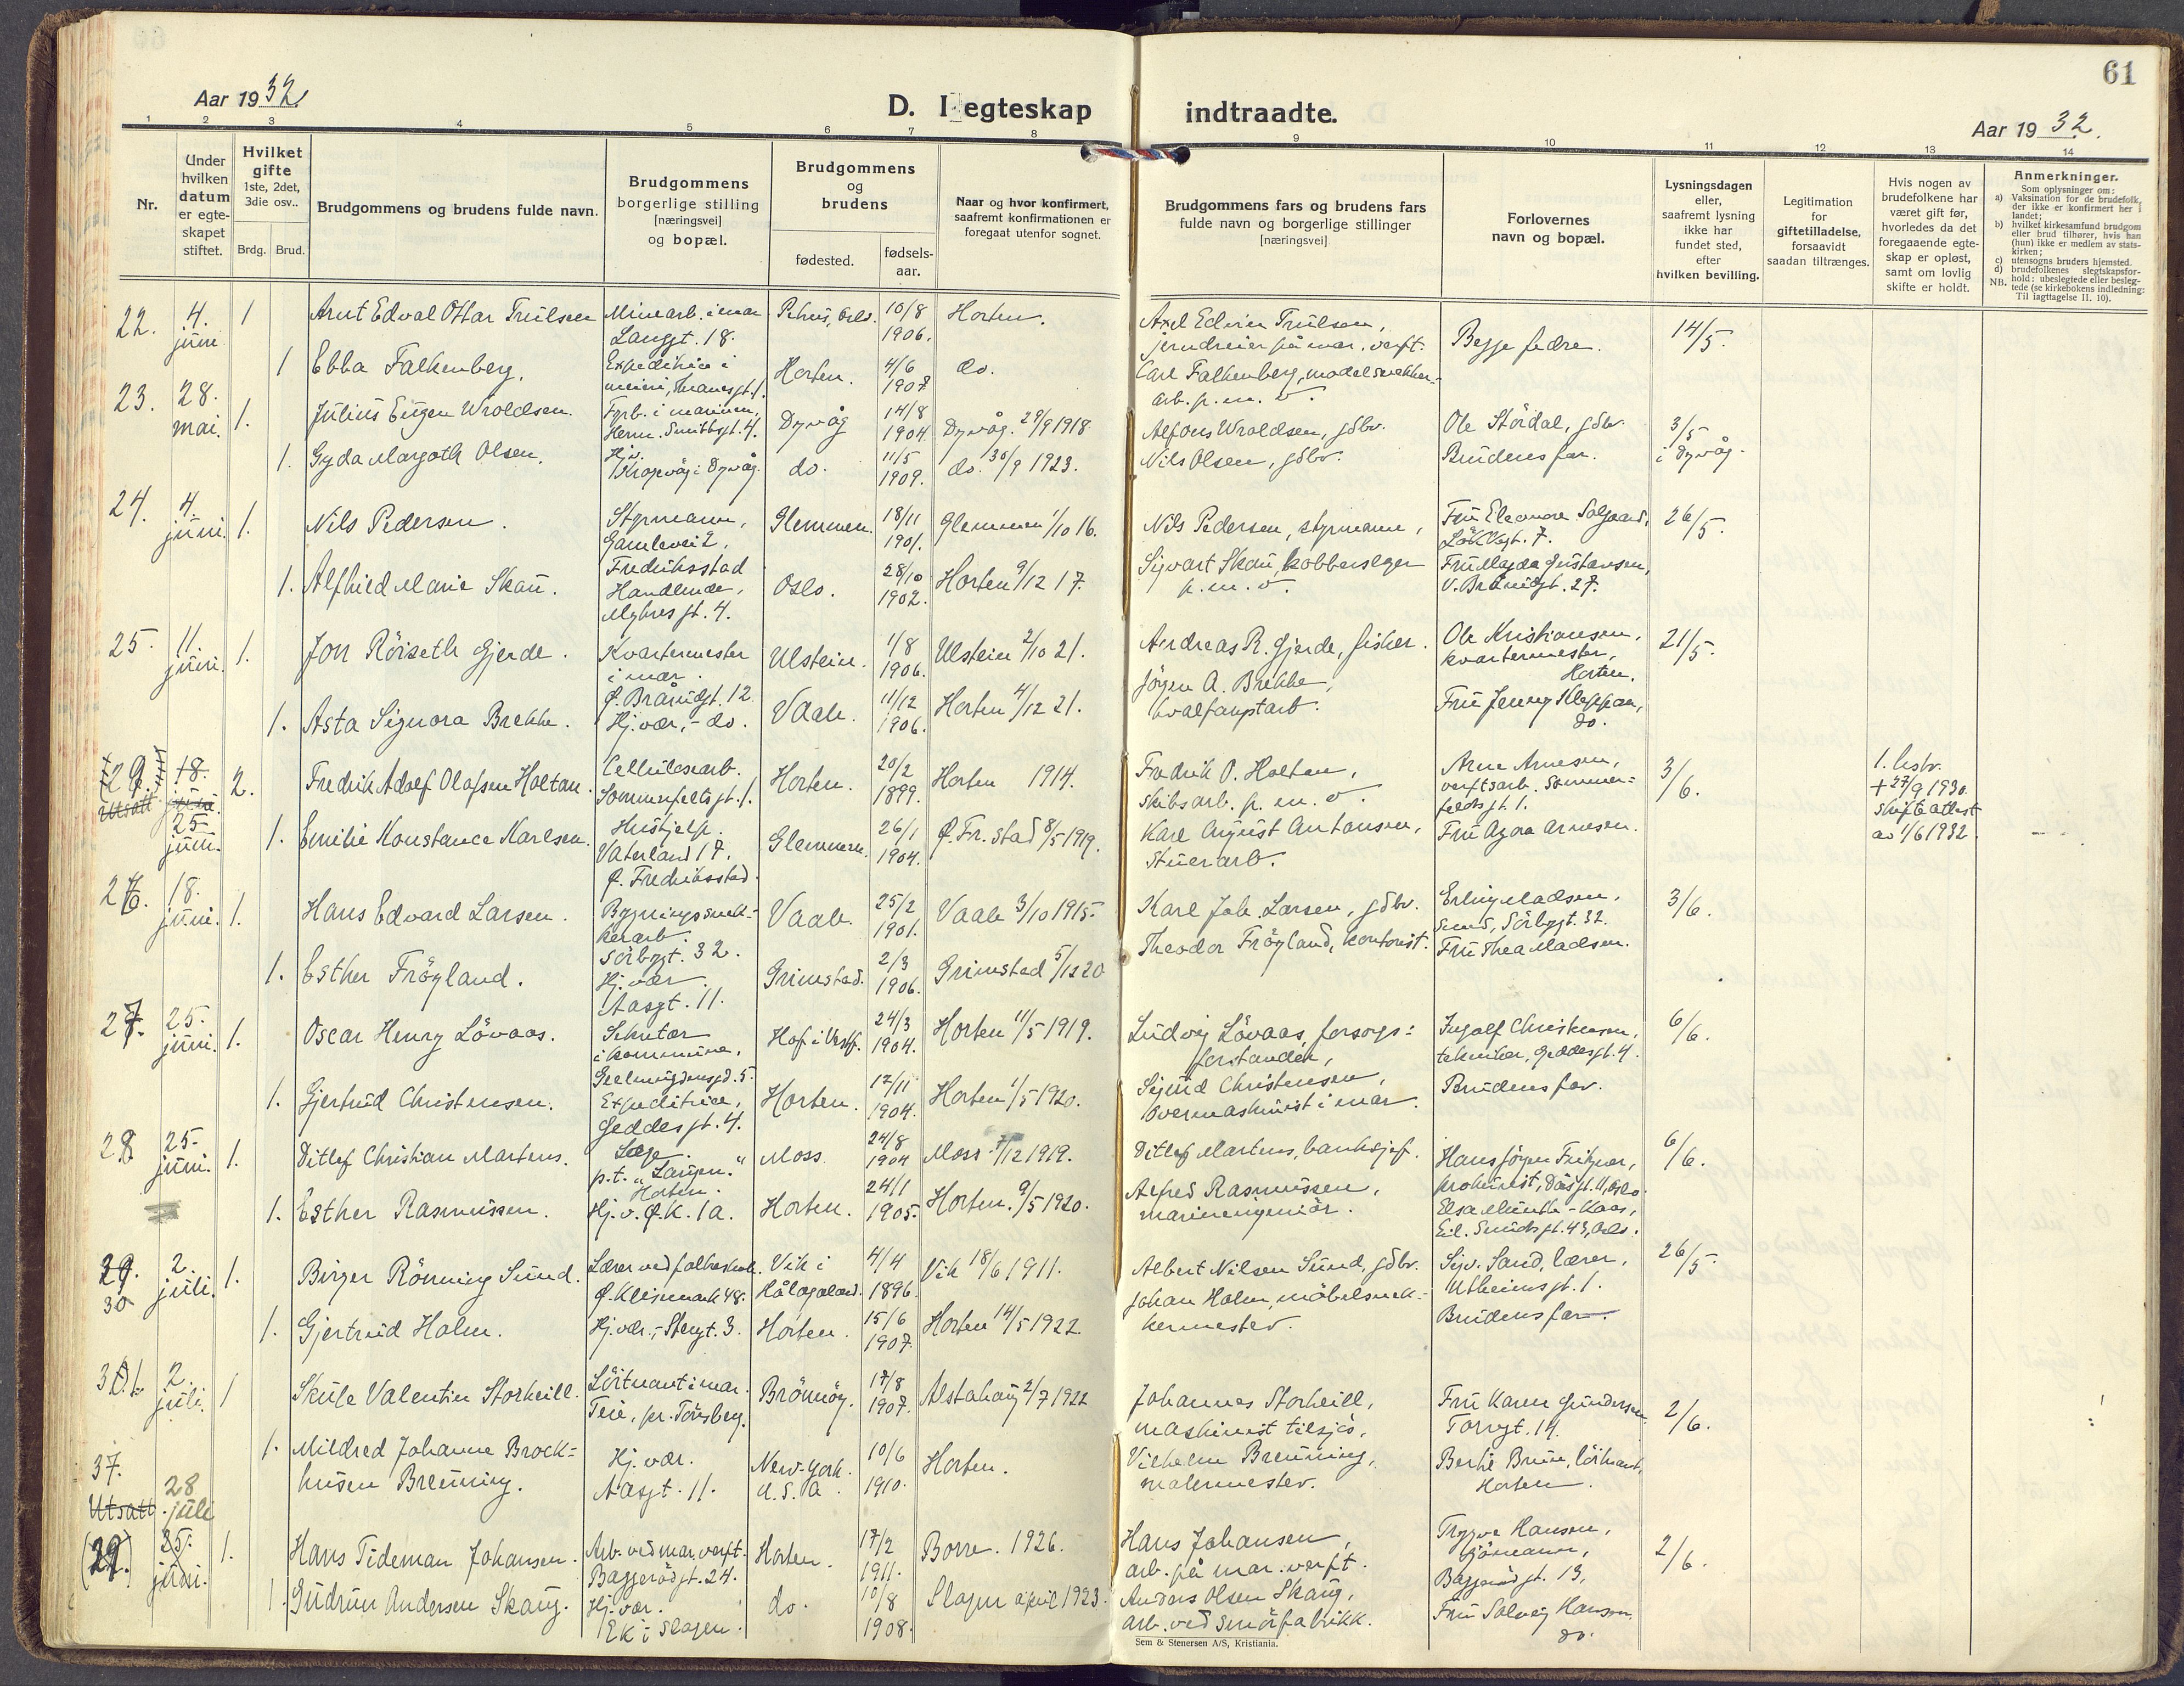 61
Aar 1932
D. I egteskap indtraadte.
Aar 1932.
1 2 3 4 5 6 7 8 9 10 11 12 13 14
Nr.
Under hvilken datum er egte-skapet stiftet.
Hvilket gifte 1ste, 2det, 3die osv..
Brdg. Brud.
Brudgommens og brudens fulde navn.
Brudgommens borgerlige stilling [næringsvei] og bopæl.
Brudgommens og brudens
fødested.
fødsels-aar.
Naar og hvor konfirmert, saafremt konfirmationen er foregaat utenfor sognet.
Brudgommens fars og brudens fars fulde navn og borgerlige stillinger [næringsvei]
Forlovernes navn og bopæl.
Lysningsdagen eller, saafremt lysning ikke har fundet sted, efter hvilken bevilling.
Legitimation for giftetilladelse, forsaavidt saadan tiltrænges.
Hvis nogen av brudefolkene har været gift før, hvorledes da det foregaaende egte-skap er opløst, samt om lovlig skifte er holdt.
Anmerkninger.
Som oplysninger om:
a) Vaksination for de brudefolk, der ikke er konfirmert her i landet;
b) hvilket kirkesamfund brudgom eller brud tilhører, hvis han (hun) ikke er medlem av stats-kirken;
c) utensogns bruders hjemsted.
d) brudefolkenes slegtskapsfor-hold: ubeslegtede eller besleg-tede (se kirkebokens indledning:
NB. Til iagttagelse II, 10).
22. 4. juni 1 Arnt Edval Ottar Trulsen Minearb. i mar Langgt. 18. 10/8 1906. Horten. Axel Edvin Trulsen, jerndreier på mar. verft. Begge fedre. 14/5.
1 Ebba Falkenberg. Expeditrice i meieri, Horten. 4/6 1907 do. Carl Falkenberg, modelsnekker-arb. p. m. v.
23. 28. mai. 1. Julius Eugen Wroldsen. Fyrb. i marinen, Herm. Smithsgt. 4. Dyvåg 14/8 1904 Dyvåg. 29/9 1918 Alfons Wroldsen, gdbr. Ole Stördal, gdbr. 3/5 i Dyvåg.
1. Gyda Margoth Olsen. Hj.v. Dyvåg. do. 11/5 1909. do. 30/9 1923. Nils Olsen, gdbr. Brudens far.
24. 4. juni. 1. Nils Pedersen. Styrmann, Gamlevei 2, Fredriksstad Glemmen. 18/11 1901. Glemmen 1/10 16. Nils Pedersen, styrmann, Fru Eleonore 26/5.
1. Alfhild Marie Skau. Handlende, Myhres gt. 4. Oslo. 28/10 1902. Horten 9/12 17. Sigvart Skau, kobberslager p. m. v. Fru Magda Gustavsen, V. Braarudgt. 27.
25. 11. juni. 1. Jon Röiseth Gjerde. Kvartermester i mar. Ø. Braarudgt. 12 Ulstein. 1/8 1906. Ulstein 2/10 21. Andreas R. Gjerde, fisker. Ole Kristiansen, kvartermester, Horten. 21/5.
1. Asta Signora Brekke. Hj. vær, - do. Vaale. 11/12 1906. Horten 4/12 21. Jörgen A. Brekke, hvalfangstarb. Fru Jenny do.
(29.) Utsatt 18. juni 25 juni. 2. Fredrik Adolf Olafsen Holtan. Cellulosearb. Sommerfeltsgt. 1. Horten. 20/2 1899. Horten 1914. Fredrik O. Holtan, skibsarb. p. m. v. Arne Arnesen, verftsarb. Sommer-feldsgt. 1. 3/6. 1. hustr. + 27/9 1930. skifteattest av 1/6 1932
1. Emilie Konstance Karlsen. Hushjelp. Vaterland 17. Ø. Fredriksstad. Glemmen. 26/1 1904. Ø. Fr.stad 8/5 1919. Karl August Antonsen, stuerarb. Fru Agna Arnesen.
26. 18. juni. 1. Hans Edvard Larsen. Bygningssnek-kerarb. Sörbygt. 32. Vaale. 25/2 1901. Vaale 3/10 1915. Karl Joh. Larsen, gdbr. Erling Madsen, smed, Sörbygt. 32. 3/6.
1. Esther Frögland. Hj. vær. Aasgt. 11. Grimstad. 2/3 1906. Grimstad 5/12 20 Theodor Frögland, kontorist. Fru Thea Madsen.
27. 25. juni. 1. Oscar Henry Lövaas. Sekretær i kommune, Hof i Vestf. 24/3 1904. Horten 11/5 1919. Ludvig Lövaas, forsorgs-forstander, Ingolf Christensen, tekniker, Geddesgt. 4. 6/6.
1. Gjertrud Christensen. Expeditrice, Geddesgt. 4. Horten. 12/11 1904. Horten 1/5 1920. Sigurd Christensen, overmaskinist i mar. Brudens far.
28 25. juni. 1. Ditlef Christian Martens. Læge. p.t. "Laugen." Horten. Moss 24/8 1904 Moss 7/12 1919. Ditlef Martens, banksjef. Hans Jörgen prokurist, Oslo 6/6.
1. Esther Rasmussen. Hj. v. Ø. K. 1a. Horten. 24/1 1905. Horten. 9/5 1920. Alfred Rasmussen, marineingeniör. Elsa Munthe-Kaas, Eil. Sundsgt. 43, Oslo.
29. 30 2. juli. 1. Birger Rönning Sund. Lærer ved folkeskole. Ø. Keisemark 48. Vik i Hålogaland. 4/4 1896. Vik 18/6 1911. Albert Nilsen Sund, gdbr. Sigv. Sand, lærer, Utheimsgt. 1. 26/5.
1. Gjertrud Holm. Hj. vær, - Stengt. 3. Horten. 15/6 1907. Horten 14/5 1922. Johan Holm, möbelsnek-kermester. Brudens far.
31. 2. juli. 1 Skule Valentin Storheill. Löitnant i mar. Teie, pr. Tönsberg. Brönnöy. 17/8 1907. Alstahaug 2/7 1922 Johannes Storheill, maskinist tilsjös, Fru Karen Gundersen Torvgt. 14. 2/6.
1. Mildred Johanne Brock-husen Breuning. Hj. vær. Aasgt. 11. New-York. U.S.A. 10/6 1910. Horten. Vilhelm Breuning, malermester. Bruun, löitnant, Horten.
37. Utsatt (29.) 28 juli 25. juni. 1. Hans Tideman Johansen. Arb. ved mar. verft. Baggerödgt. 24. Horten. 17/2 1911. Borre. 1926. Hans Johansen, arb. på mar. verft. Trygve Hansen, sjömann, Baggerödgt. 13, 2/6.
1. Gudrun Andersen Skaug. Hj. vær. Ek i Slagen. do. 10/8 1908. Slagen april 1923. Anders Olsen Skaug, arb. ved smörfabrikk. Fru Solveig Hansen. do.
Sem & Stenersen A/S, Kristiania.